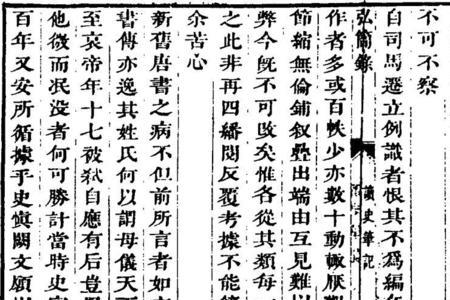 不可不察
自司馬遷立例識者恨其不為編
弘簡錄
讀史筆記
作者多或百帙少亦數十動輒厭
節縮無倫鋪叙疊出端由互見難
弊今既不可改矣惟各從其類每
之此非再四繙閱反覆考據不能
余苦心
新舊唐書之病不但前所言者如
書傳亦逸其姓氏何以謂母儀天
至哀帝年十七被弑自應有后豈
他微而泯没者何可勝計當時史
百年又安所循據乎史慎闕文願